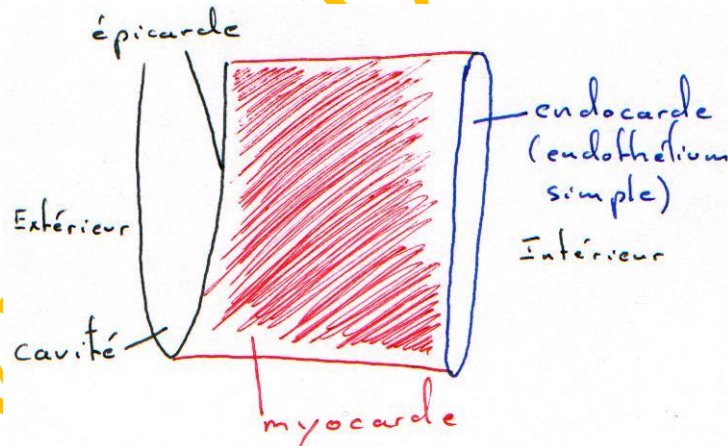 épicarde
endocarde
(endothélium
simple)
Extérieur
Intérieur
cavité
myocarde